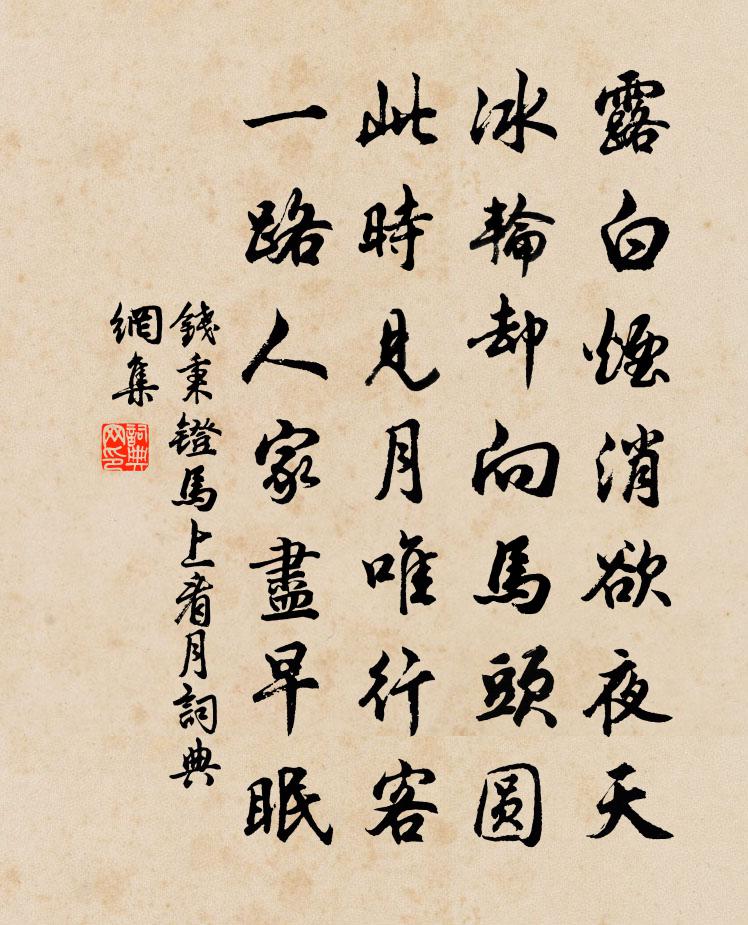 露白煙消欲夜天
冰輪却向馬頭圆
此時見月唯行客
一路人家盡早眠
錢秉鐙馬上看月詞典
網集
詞典
网印